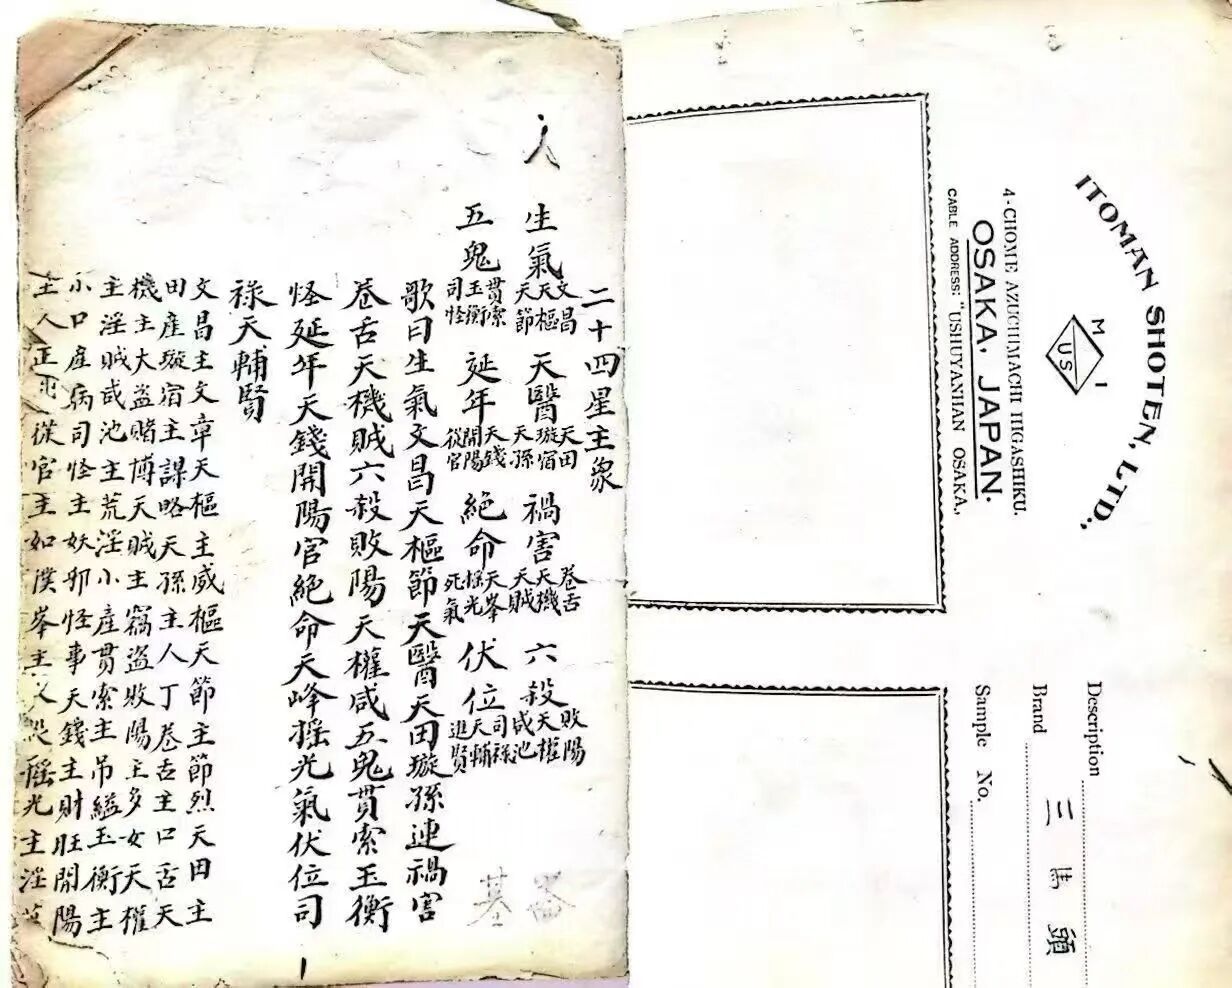 二十四星主象
生氣 文昌 天樞 天節 天醫 天田 璇宿 天孫 禍害 卷舌 天機 天賊 六殺 敗陽 天權 咸池
五鬼 貫索 玉衡 司怪 延年 天錢 開陽 從官 絕命 天峯 摇光 死氣 伏位 司祿 天輔 進賢
歌曰生氣文昌天樞節天醫天田璇孫連禍害
卷舌天機賊六殺敗陽天權咸五鬼貫索玉衡
怪延年天錢開陽官絕命天峰摇光氣伏位司
祿天輔賢
文昌主文章天樞主威樞天節主節烈天田主
田産璇宿主謀略天孫主人丁卷舌主口舌天
機主大盗賭博天賊主竊盗敗陽主多女天權
主淫賊咸池主荒淫小産貫索主吊縊玉衡主
小口産病司怪主妖邪怪事天錢主財旺開陽
主人正從官主如僕峯主摇光主淫
ITOMAN SHOTEN, LTD.,
M I
US
4-CHOME AZUCHIMACHI HIGASHIKU.
OSAKA, JAPAN.
CABLE ADDRESS: "USHUYANHAN OSAKA,,
Description
Brand 三 頭
Sample No.